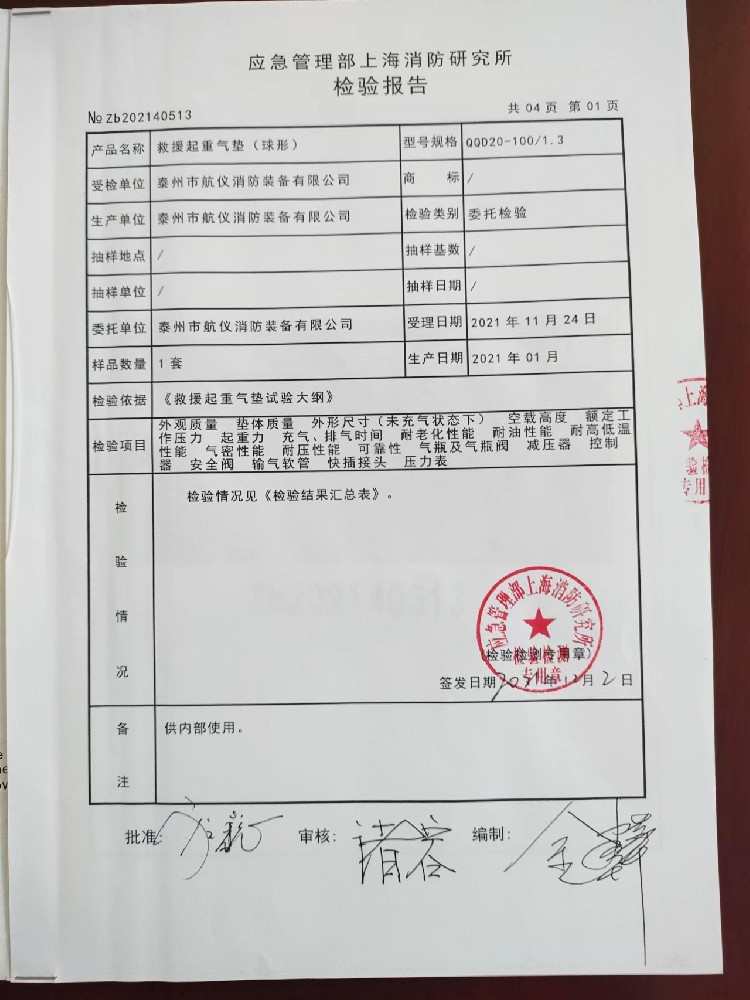 应急管理部上海消防研究所
检验报告
№ Zb202140513
共 04 页 第 01 页
产品名称 救援起重气垫（球形） 型号规格 QQD20-100/1.3
受检单位 泰州市航仪消防装备有限公司 商 标 /
生产单位 泰州市航仪消防装备有限公司 检验类别 委托检验
抽样地点 / 抽样基数 /
抽样单位 / 抽样日期 /
委托单位 泰州市航仪消防装备有限公司 受理日期 2021 年 11 月 24 日
样品数量 1 套 生产日期 2021 年 01 月
检验依据 《救援起重气垫试验大纲》
检验项目 外观质量 垫体质量 外形尺寸（未充气状态下） 空载高度 额定工
作压力 起重力 充气、排气时间 耐老化性能 耐油性能 耐高低温
性能 气密性能 耐压性能 可靠性 气瓶及气瓶阀 减压器 控制
器 安全阀 输气软管 快插接头 压力表
检验情况
检验情况见《检验结果汇总表》。
应急管理部上海消防研究所
检验检测
专用章
（检验检测专用章）
签发日期 2021 年 12 月 2 日
备注
供内部使用。
批准: 审核: 编制:
上海
验检
专用